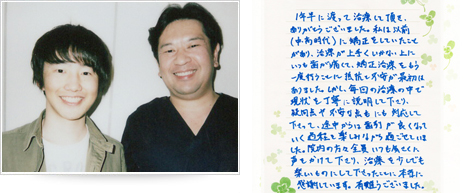 1年半に渡って治療して頂き、
ありがとうございました。私は以前
(中高時代)に矯正をしていたこと
があり、治療が上手くいかない上に
いつも歯が痛くて、矯正治療をもう
一度行うことに抵抗と不安が最初は
ありました。しかし、毎回の治療の中で
現状を丁寧に説明して下さり、
疑問点や不安な点もにも対応して
下さって、途中からは歯列が良くなって
いく過程を楽しみながら過ごしていま
した。院内の方々全員いつも優しくお
声をかけて下さり、治療を少しでも
楽しいものにして下さったことに本当に
感謝しています。有難うございました。